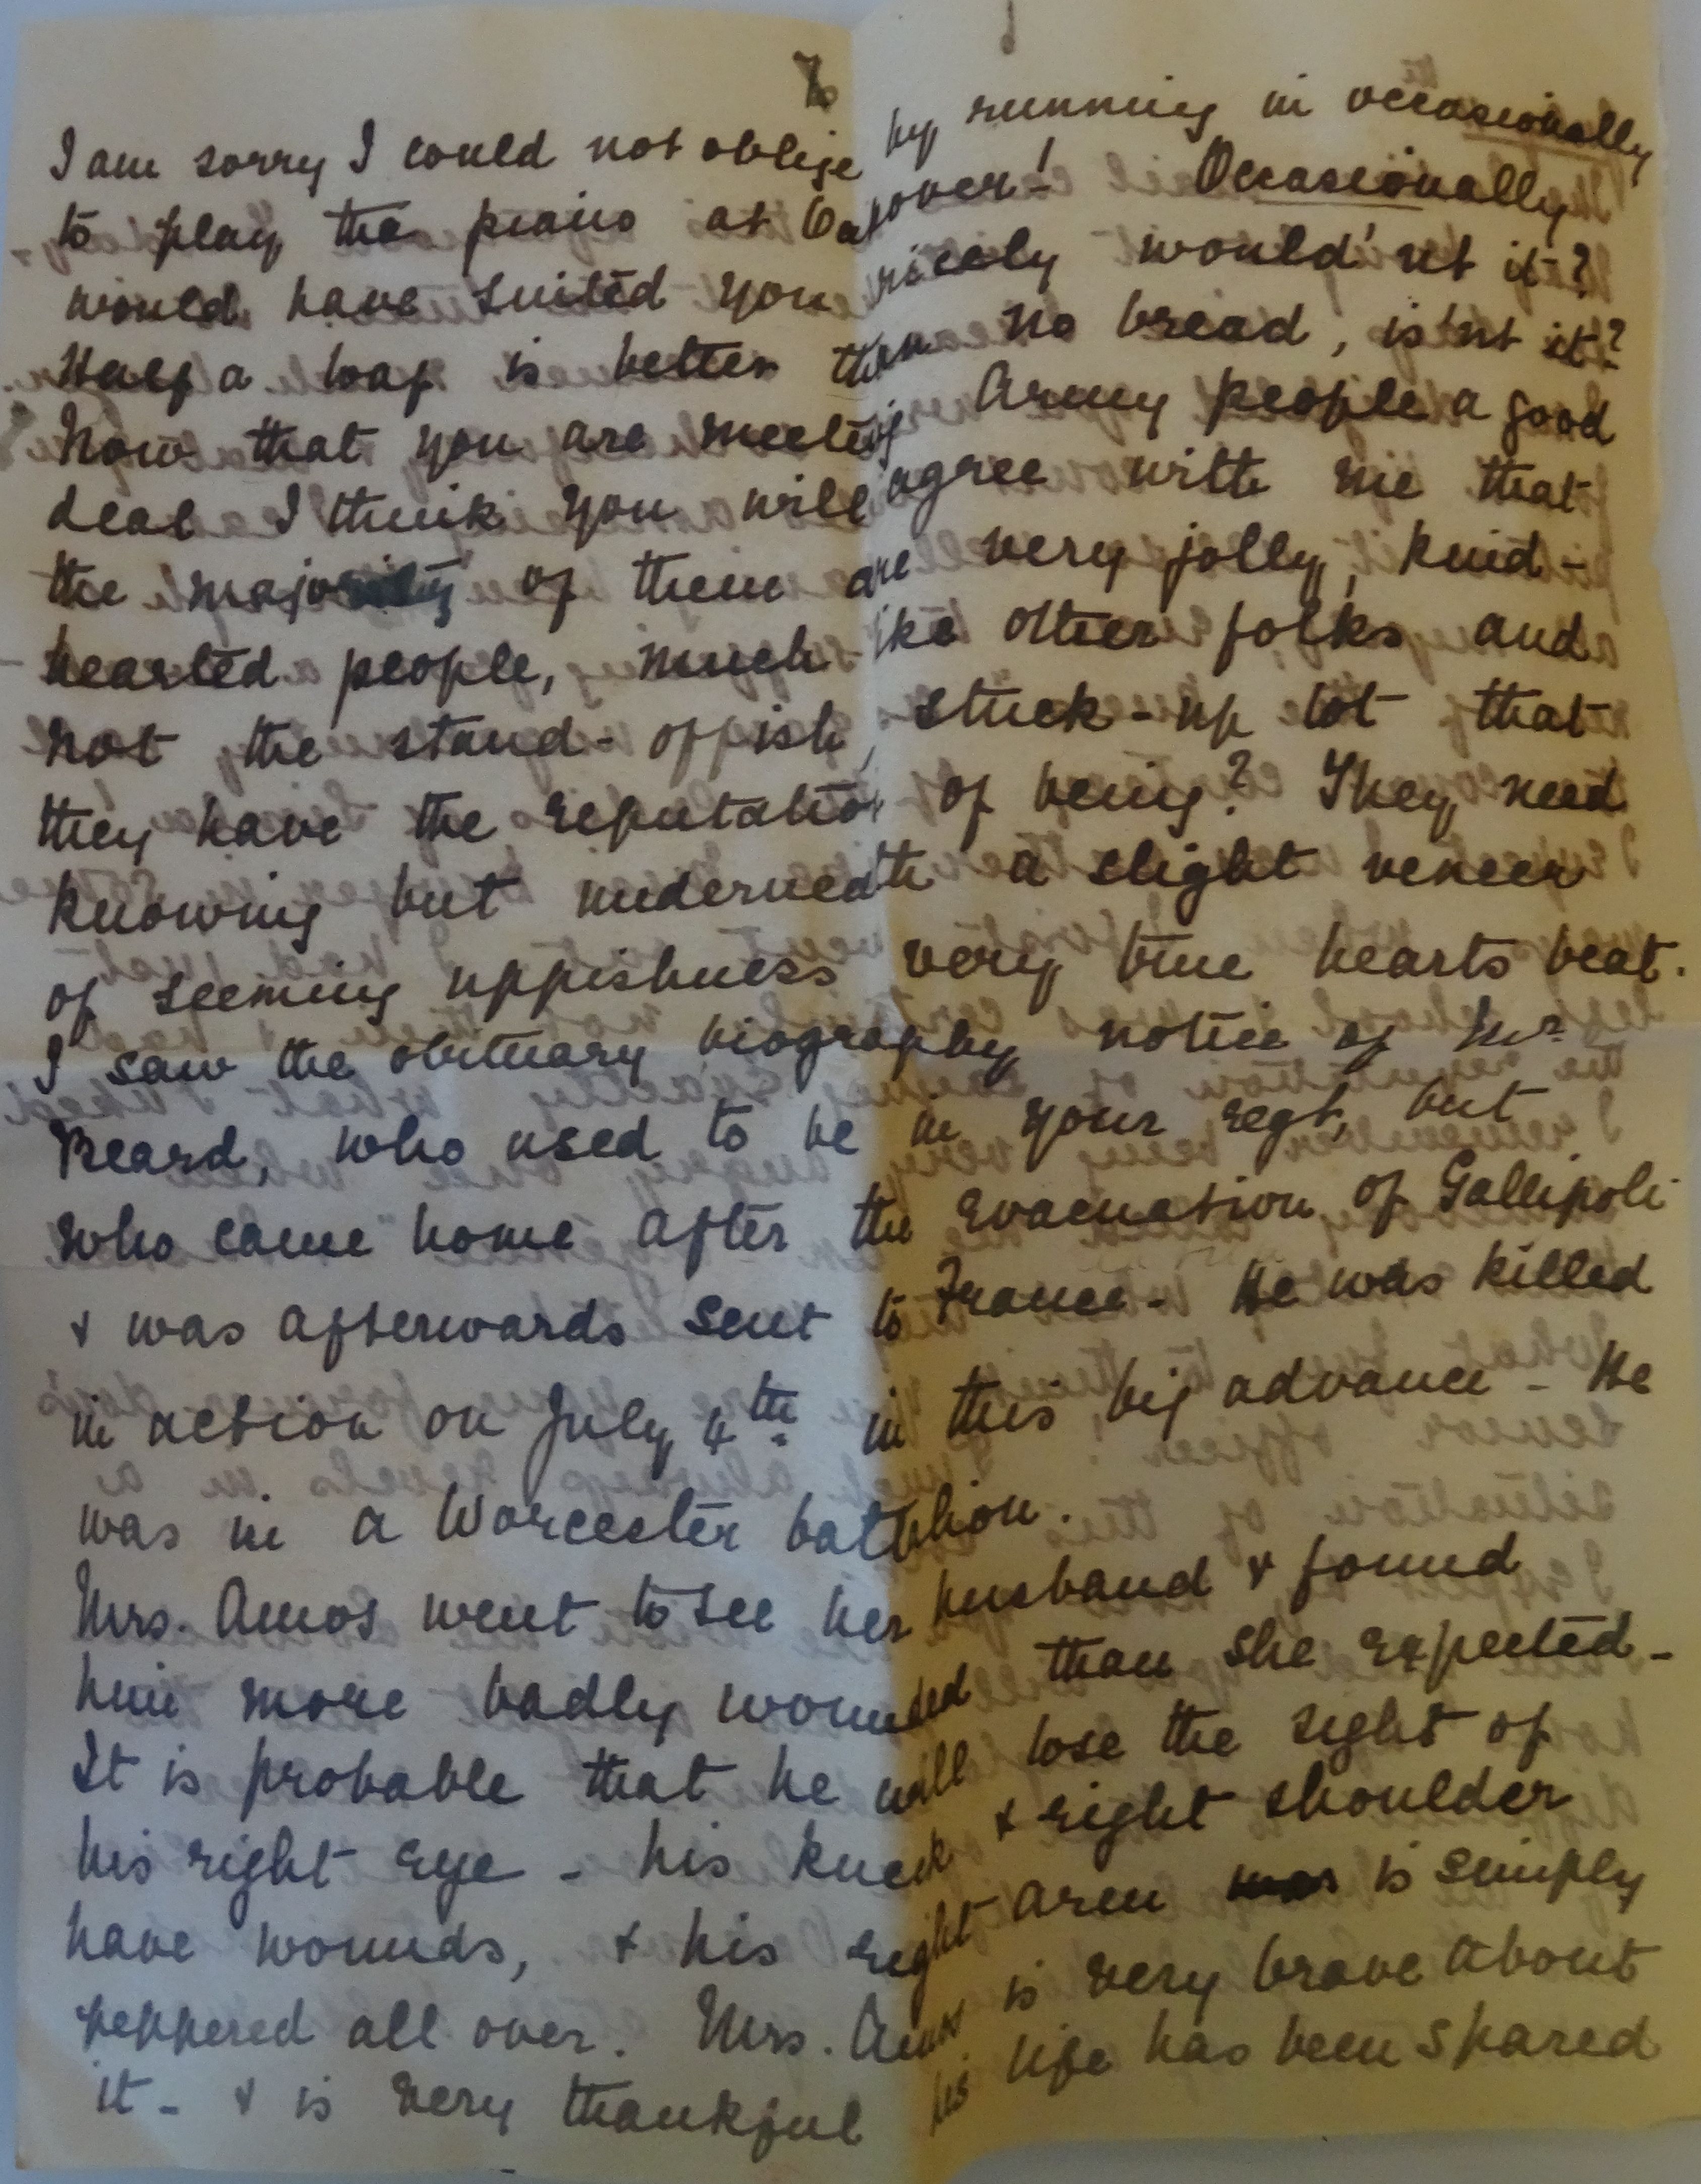 7.
I am sorry I could not oblige by running in occasionally
to play the piano at Batsover! Occasionally
would have suited you nicely would'nt it?
Half a loaf is better than no bread, is'nt it?
Now that you are meeting Army people a good
deal I think you will agree with me that
the majority of them are very jolly, kind-
hearted people, much like other folks and
not the stand-offish, stuck-up lot that
they have the reputation of being? They need
knowing but underneath a slight veneer
of seeming uppishness very true hearts beat.
I saw the obituary biography notice of Mr
Beard, who used to be in your regt, but
who came home after the evacuation of Gallipoli
& was afterwards sent to France - He was killed
in action on July 4th in this big advance - He
was in a Worcester battalion.
Mrs. Amos went to see her husband & found
him more badly wounded than she expected -
It is probable that he will lose the sight of
his right eye - his kneck & right shoulder
have wounds, & his right arm is simply
peppered all over. Mrs. Amos is very brave about
it - & is very thankful his life has been spared